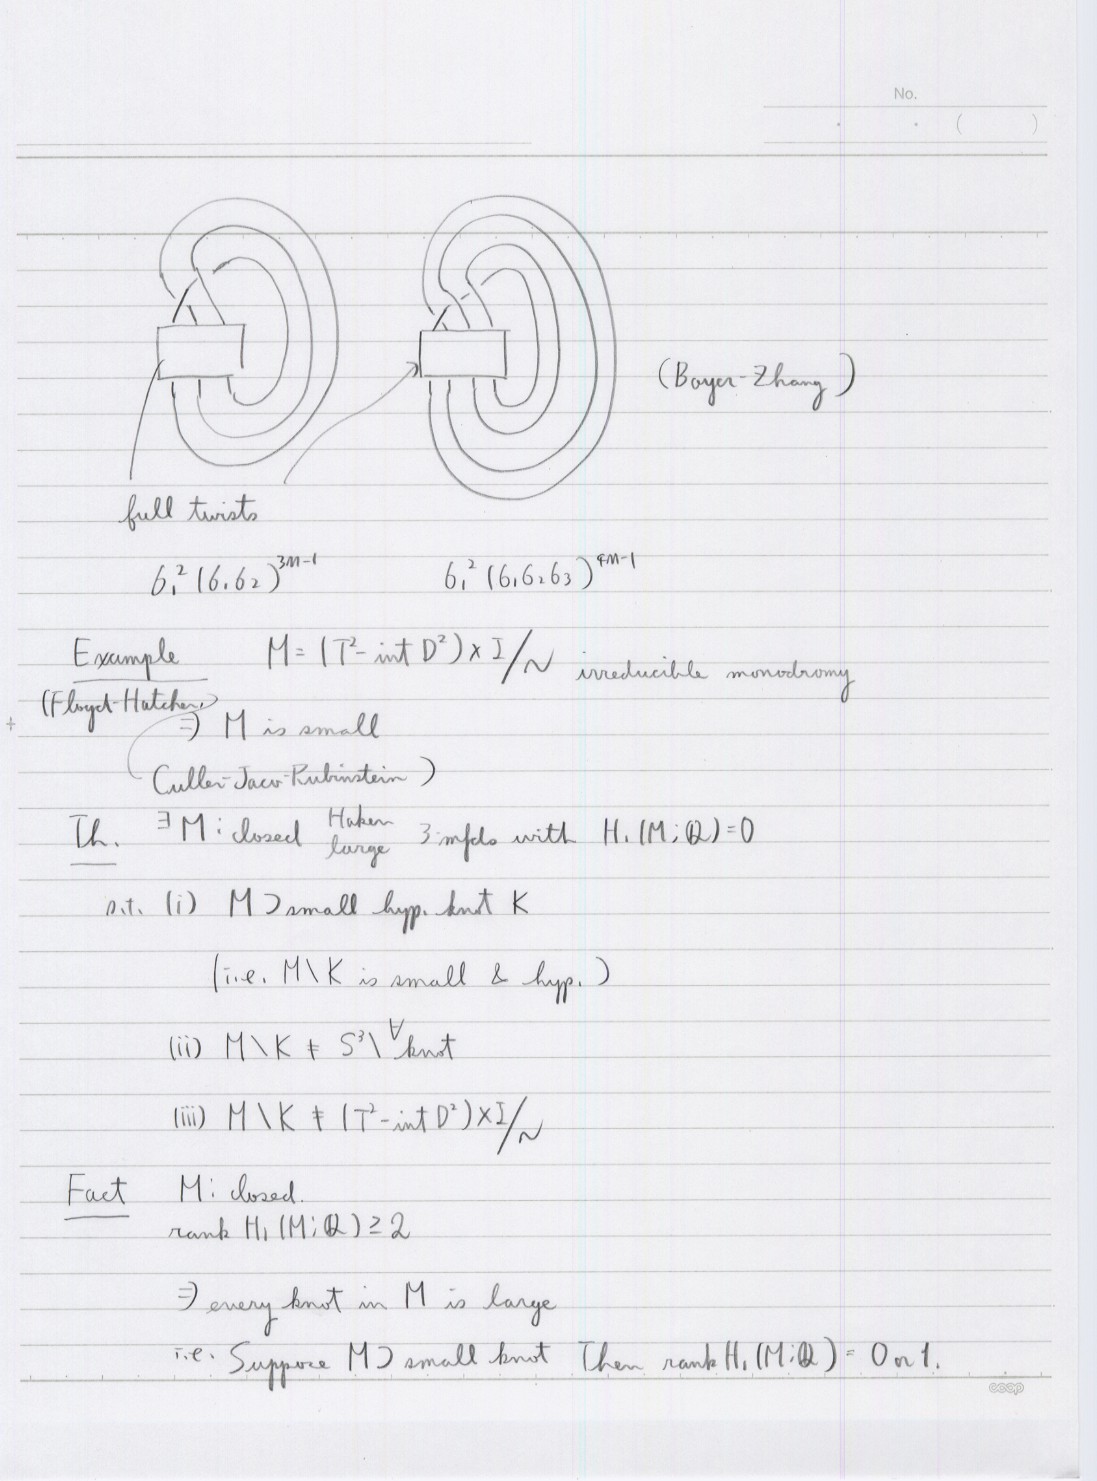 No.
( )
(Boyer-Zhang)
full twists
σ₁²(σ₁σ₂)³ⁿ⁻¹ σ₁²(σ₁σ₂σ₃)⁴ⁿ⁻¹
Example M = (T²- int D²) × I/∼ irreducible monodromy
(Floyd-Hatcher,
⇒ M is small
Culler-Jaco-Rubinstein)
Th. ∃M: closed Haken large 3-mfds with H₁(M;Q)=0
s.t. (i) M⊃small hyp. knot K
(i.e. M\K is small & hyp.)
(ii) M\K ≠ S³\∀knot
(iii) M\K ≠ (T²-int D²)×I/∼
Fact M: closed.
rank H₁(M;Q) ≥ 2
⇒ every knot in M is large
i.e. Suppose M⊃ small knot Then rank H₁(M;Q) = 0 or 1.
coop